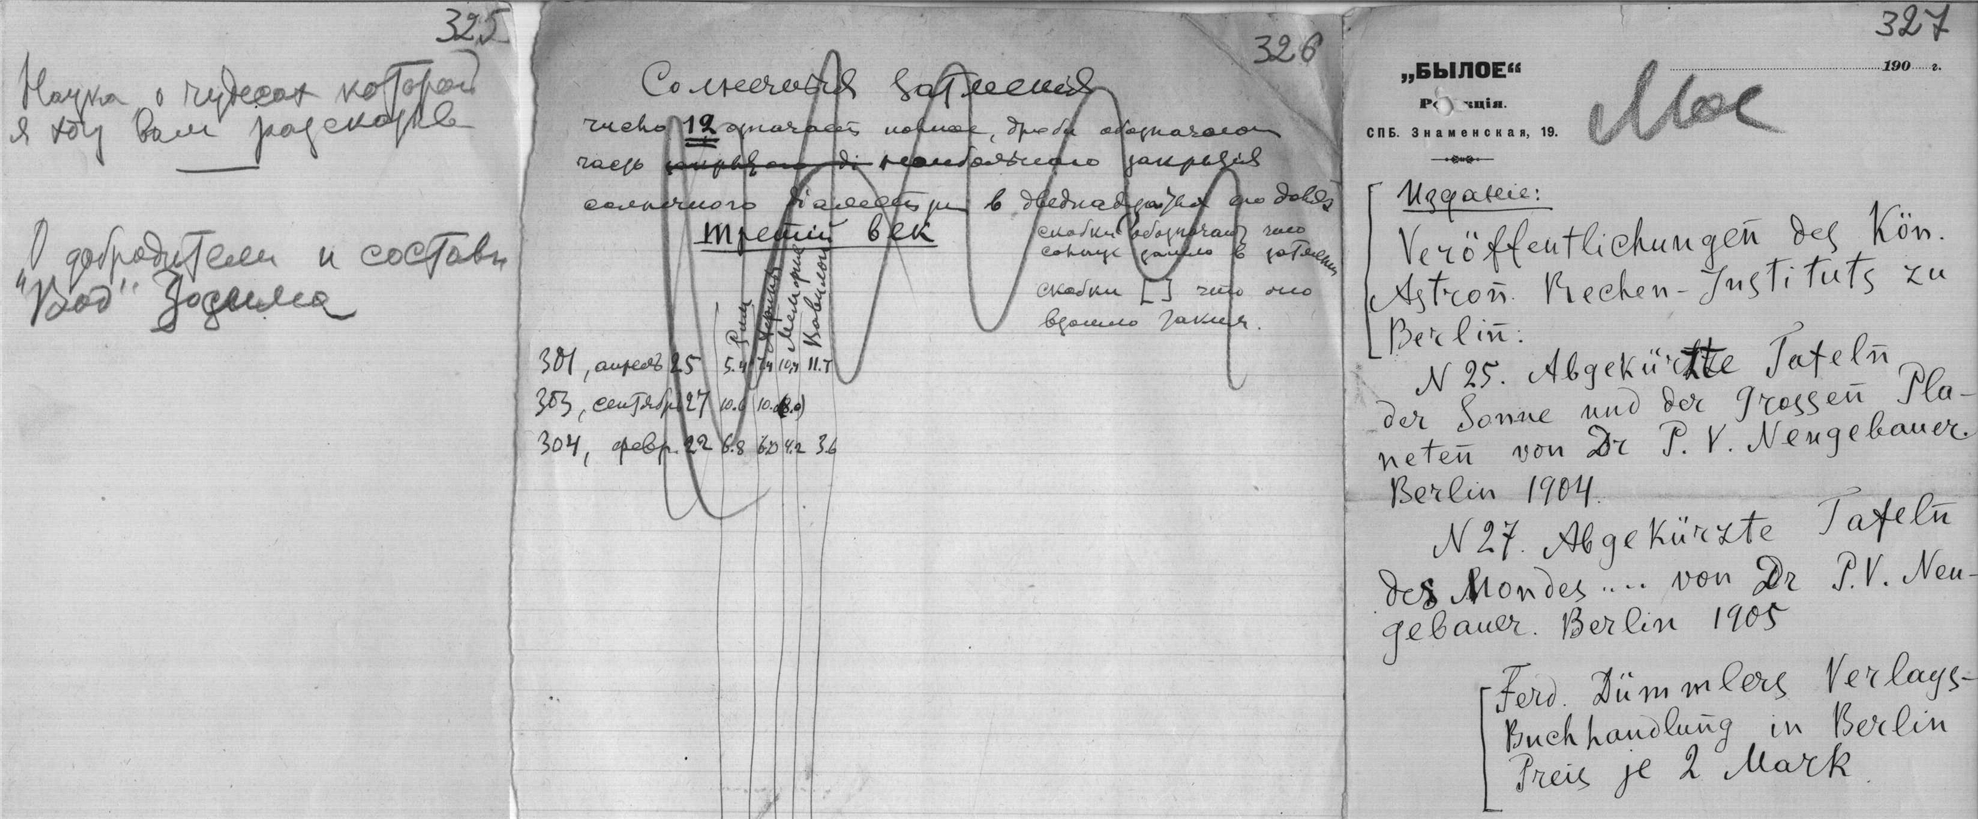 325
Наука о чудесах которой
я хочу вам разсказать
О добродетели и составе
"Вод" Зосима
326
Солнечныя затмения
число 12 означает полное, дроби обозначают
часть наибольшаго закрытия
солнечного диаметра в двенадцатых его долях
третий век
скобки обозначают что
солнце зашло в затмении
скобки [ ] что оно
взошло таким.
Рим
Мемфис
Вавилон
301, апрель 25 5.4 7.4 10.4 11.7
303, сентябр. 27 10.6
304, февр. 22 6.8 6.0 4.2 3.6
327
„БЫЛОЕ“
190 г.
СПБ. Знаменская, 19.
Мое
Издание:
Veröffentlichungen des Kön.
Astron. Rechen-Instituts zu
Berlin:
N 25. Abgekürzte Tafeln
der Sonne und der Grossen Pla-
neten von Dr P. V. Neugebauer.
Berlin 1904.
N 27. Abgekürzte Tafeln
des Mondes .... von Dr P.V. Neu-
gebauer. Berlin 1905
Ferd. Dümmlers Verlags-
Buchhandlung in Berlin
Preis je 2 Mark